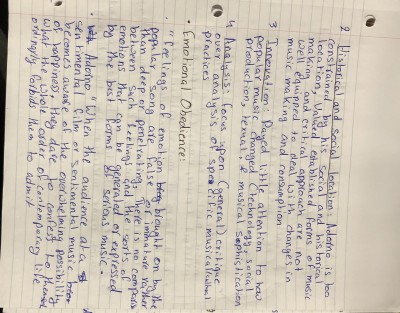 2 Historical and social location: Adorno is too
constrained by his social and historical
location, Valued established forms of music
making and critical approach are not
well equipped to deal with changes in
music making and consumption
3 Innovation: Payed little attention to how
popular music changed: technology, social
production, textual & musical sophistication
4 Analysis: focus upon (general) critique
over analysis of specific musical/cultural
practices
Emotional Obedience:
"feelings of emotion brought on by the
popular song are false or immature rather
than deep or penetrating there is no comparison
between such feelings and the sorts of
emotions that can be generated or expressed
by the best forms of serious music.
Adorno "When the audience at a
sentimental film or sentimental music
becomes aware of the overwhelming possibility
of happiness, they dare to confess to themselves
what the whole order of contemporary life
ordinarily forbids them to admit